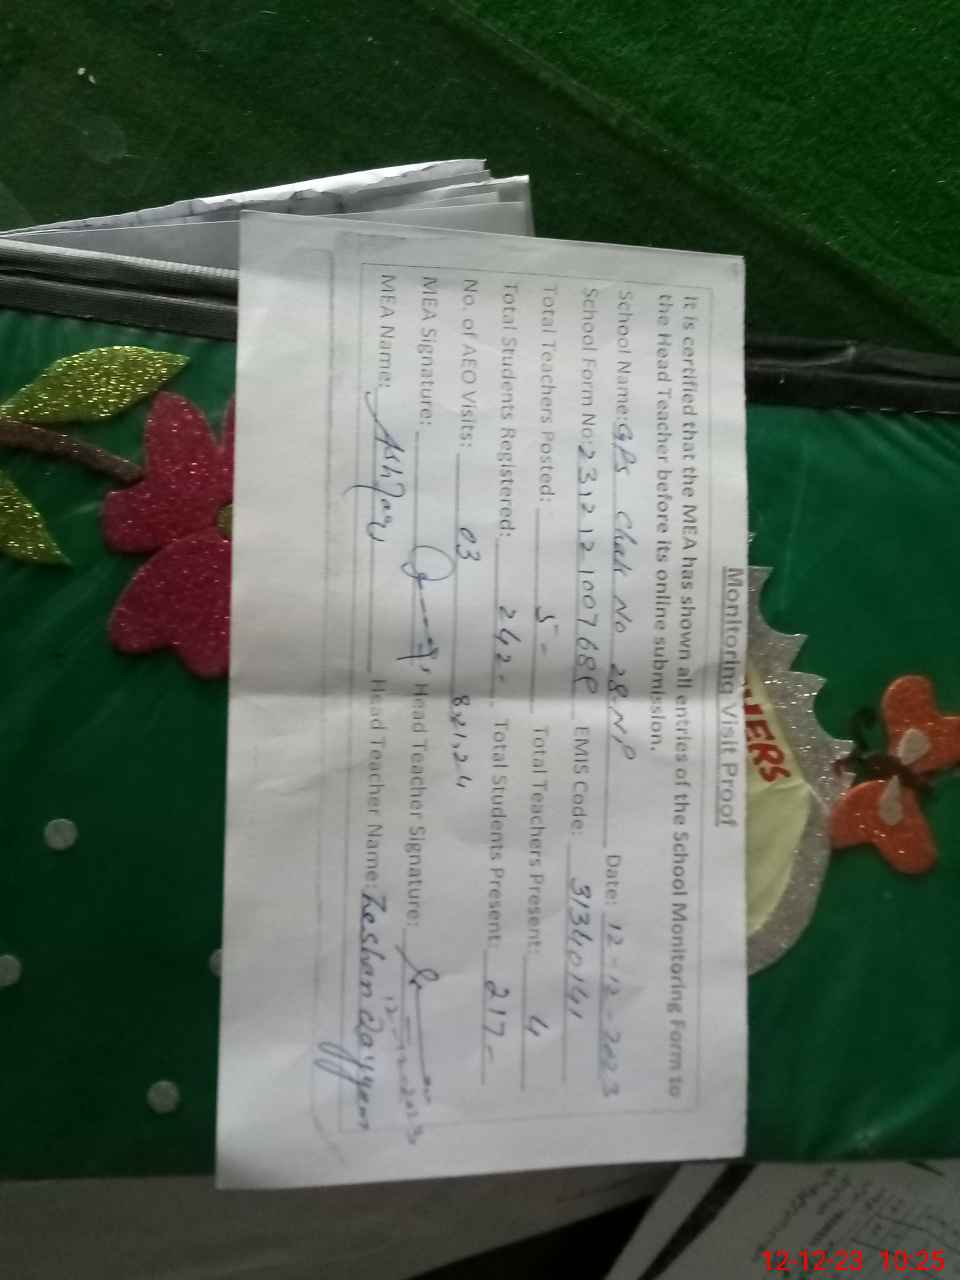 Monitoring Visit Proof
It is certified that the MEA has shown all entries of the School Monitoring Form to
the Head Teacher before its online submission.
School Name: GPS Chak No 28NP Date: 12-12-2023
School Form No: EMIS Code: 31340141
Total Teachers Posted: 5- Total Teachers Present: 4
Total Students Registered: 242- Total Students Present: 217-
No. of AEO Visits: 03 8,21,24
MEA Signature: Head Teacher Signature:
12-12-2023
MEA Name: Head Teacher Name: Zeshan Qayyam
12-12-23 10:25